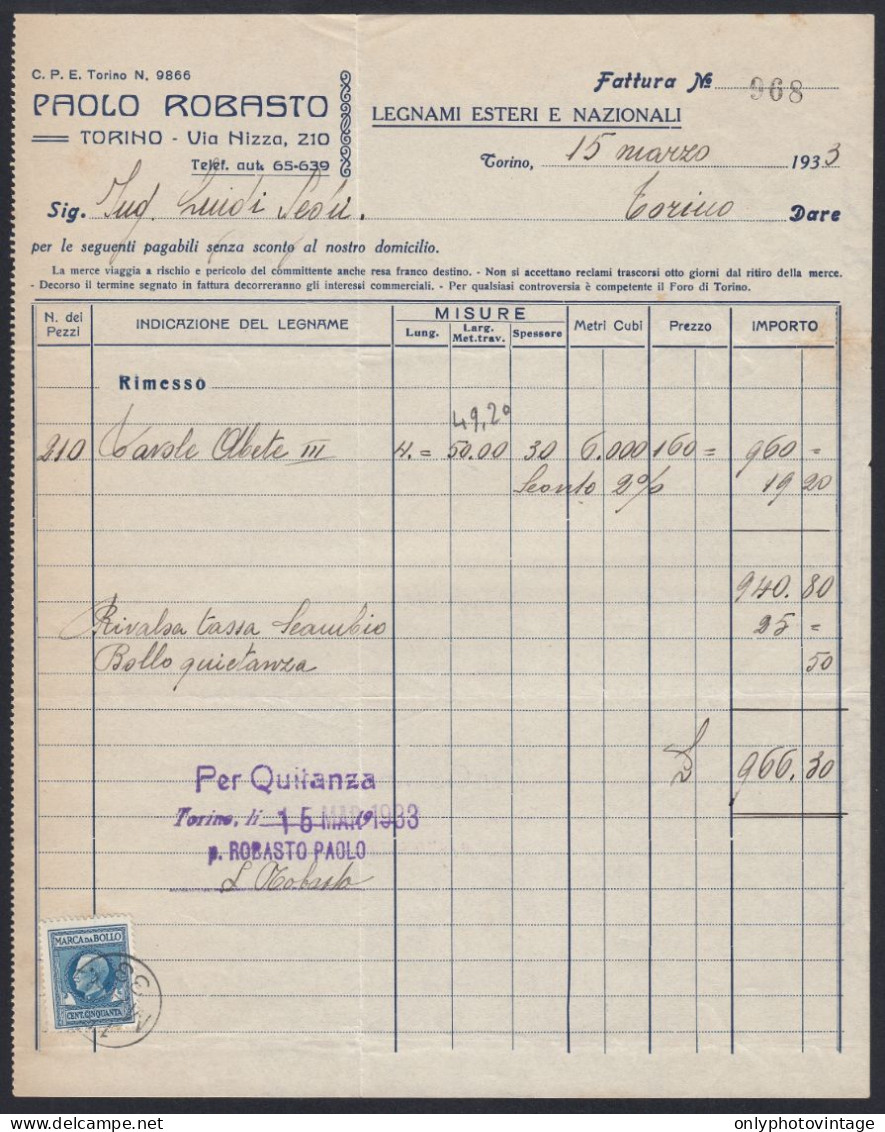 C. P. E. Torino N. 9866
PAOLO ROBASTO
TORINO - Via Nizza, 210
Telef. aut. 65-639
Fattura № 968
LEGNAMI ESTERI E NAZIONALI
Torino, 15 marzo 1933
Sig. Ing. Luigi Torino Dare
per le seguenti pagabili senza sconto al nostro domicilio.
La merce viaggia a rischio e pericolo del committente anche resa franco destino. - Non si accettano reclami trascorsi otto giorni dal ritiro della merce.
- Decorso il termine segnato in fattura decorreranno gli interessi commerciali. - Per qualsiasi controversia è competente il Foro di Torino.
N. dei Pezzi INDICAZIONE DEL LEGNAME MISURE Metri Cubi Prezzo IMPORTO
Lung. Larg. Met.trav. Spessore
Rimesso
49,20
210 Tavole Abete III 4.= 50.00 30 6.000 160= 960=
Sconto 2% 19 20
940.80
Rivalsa tassa Scambio 25=
Bollo quietanza 50
L 966.30
Per Quitanza
Torino, li 15 MAR 1933
p. ROBASTO PAOLO
L Robasto
MARCA DA BOLLO
CENT. CINQUANTA
www.onlyphotovintage.com
onlyphotovintage